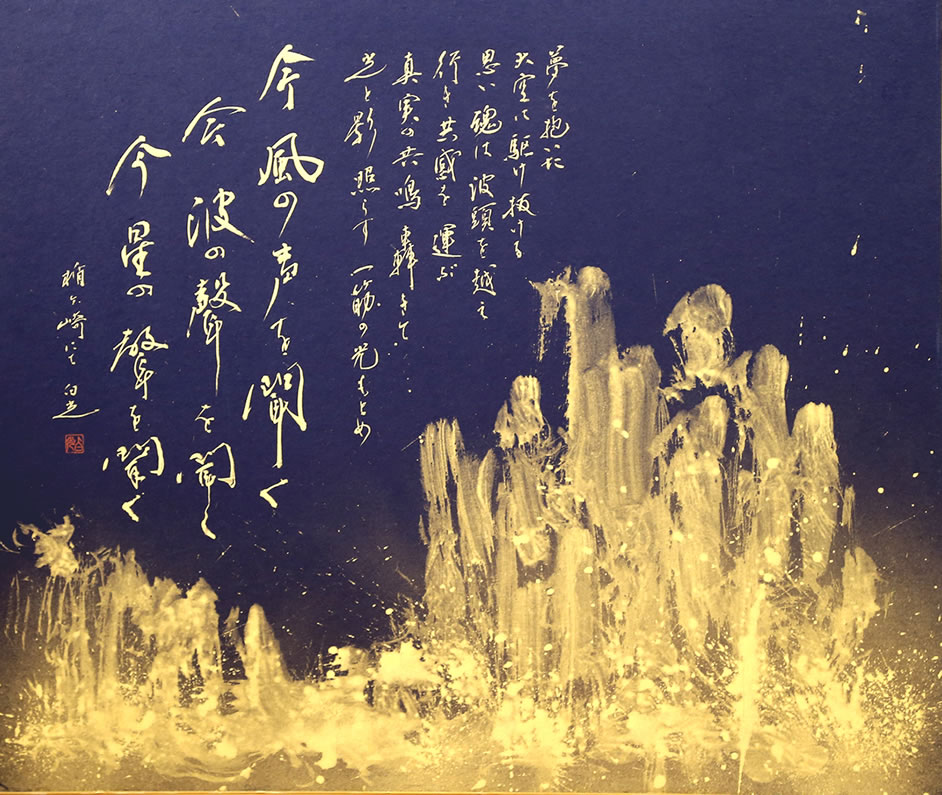 夢を抱いた
大空に駆け抜ける
思い魂は波頭を越え
行き共感を運ぶ
真実の共鳴轟きて
光と影照らす一筋の光もとめ
今風の声を聞く
今波の聲を聞く
今星の聲を聞く
ヶ崎にて 白光